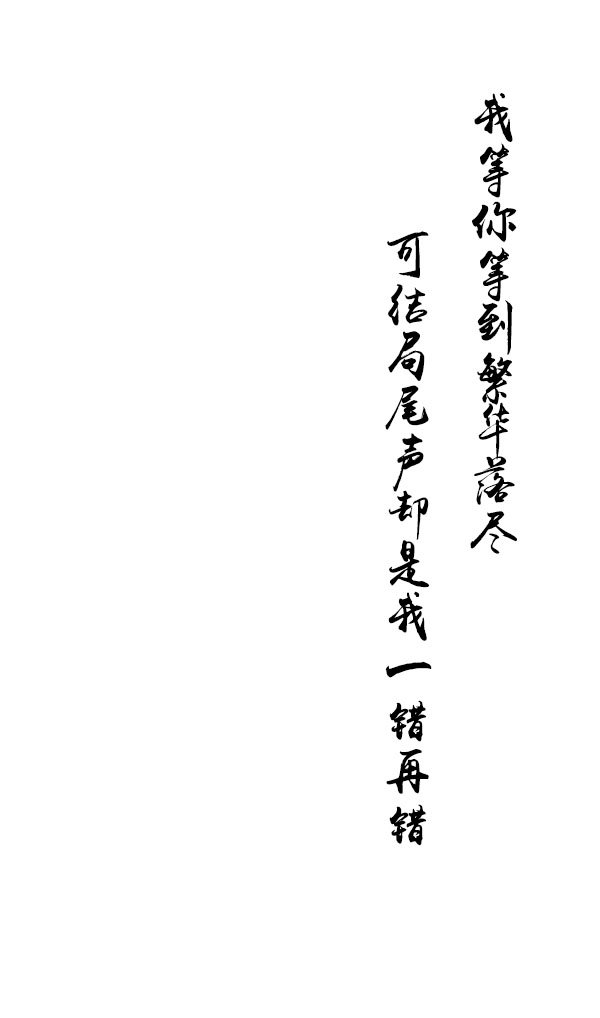 我等你等到繁华落尽
可结局尾声却是我一错再错